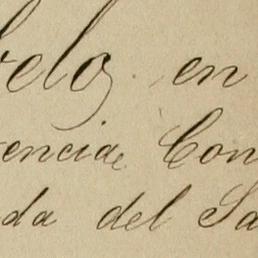 elo, en
encia, Con
da del Sa